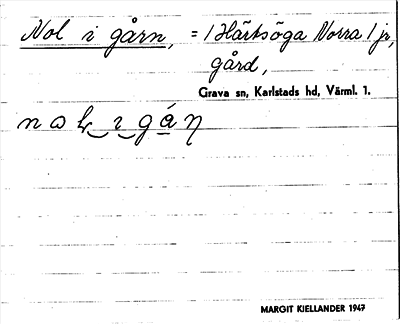 Nol i gårn, = / Härtsöga Norra / jr,
gård,
Grava sn, Karlstads hd, Värml. 1.
MARGIT KIELLANDER 1947